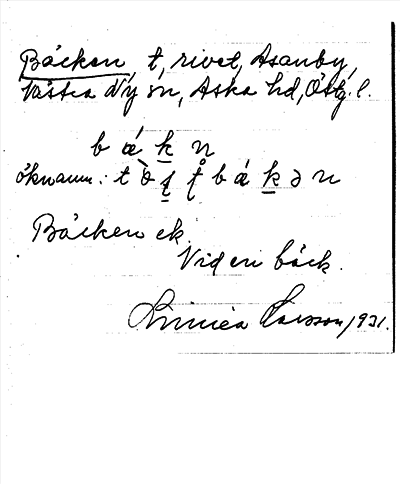 Bäcken, t, rivet, Asanby,
Västra Ny sn, Aska hd, Östg. l.
b á k n
öknamn: t b á k ə n
Bäcken ek
Vid en bäck.
Linnéa Larsson, 1931.